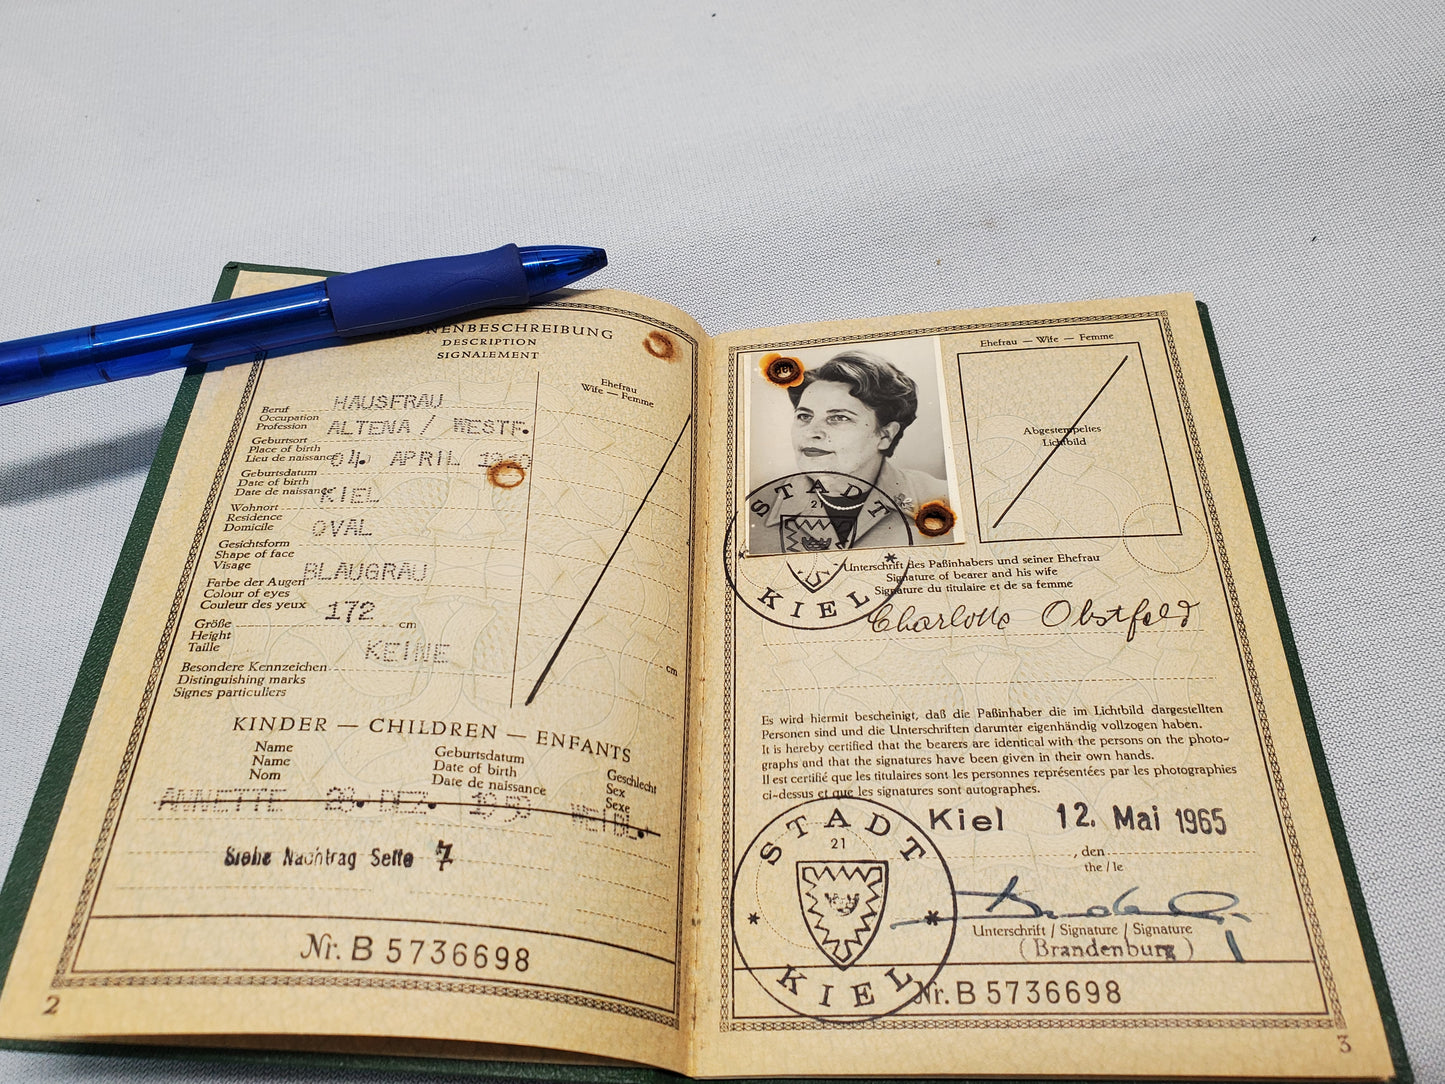 PERSONENBESCHREIBUNG
DESCRIPTION
SIGNALEMENT
Ehefrau
Wife — Femme
Beruf
Occupation
Profession
HAUSFRAU
Geburtsort
Place of birth
Lieu de naissance
ALTENA / WESTF.
Geburtsdatum
Date of birth
Date de naissance
04. APRIL
Wohnort
Residence
Domicile
KIEL
Gesichtsform
Shape of face
Visage
OVAL
Farbe der Augen
Colour of eyes
Couleur des yeux
BLAUGRAU
Größe
Height
Taille
172 cm
cm
Besondere Kennzeichen
Distinguishing marks
Signes particuliers
KEINE
KINDER — CHILDREN — ENFANTS
Name
Name
Nom
Geburtsdatum
Date of birth
Date de naissance
Geschlecht
Sex
Sexe
ANNETTE 28. DEZ. 1950 WEIBL.
Siehe Nachtrag Seite 7
Nr. B 5736698
2
Ehefrau — Wife — Femme
Abgestempeltes
Lichtbild
STADT
21
KIEL
Unterschrift des Paßinhabers und seiner Ehefrau
Signature of bearer and his wife
Signature du titulaire et de sa femme
Charlotte Obstfeld
Es wird hiermit bescheinigt, daß die Paßinhaber die im Lichtbild dargestellten
Personen sind und die Unterschriften darunter eigenhändig vollzogen haben.
It is hereby certified that the bearers are identical with the persons on the photo-
graphs and that the signatures have been given in their own hands.
Il est certifié que les titulaires sont les personnes représentées par les photographies
ci-dessus et que les signatures sont autographes.
Kiel 12. Mai 1965
, den
the / le
STADT
21
KIEL
Unterschrift / Signature / Signature
( Brandenburg )
Nr. B 5736698
3